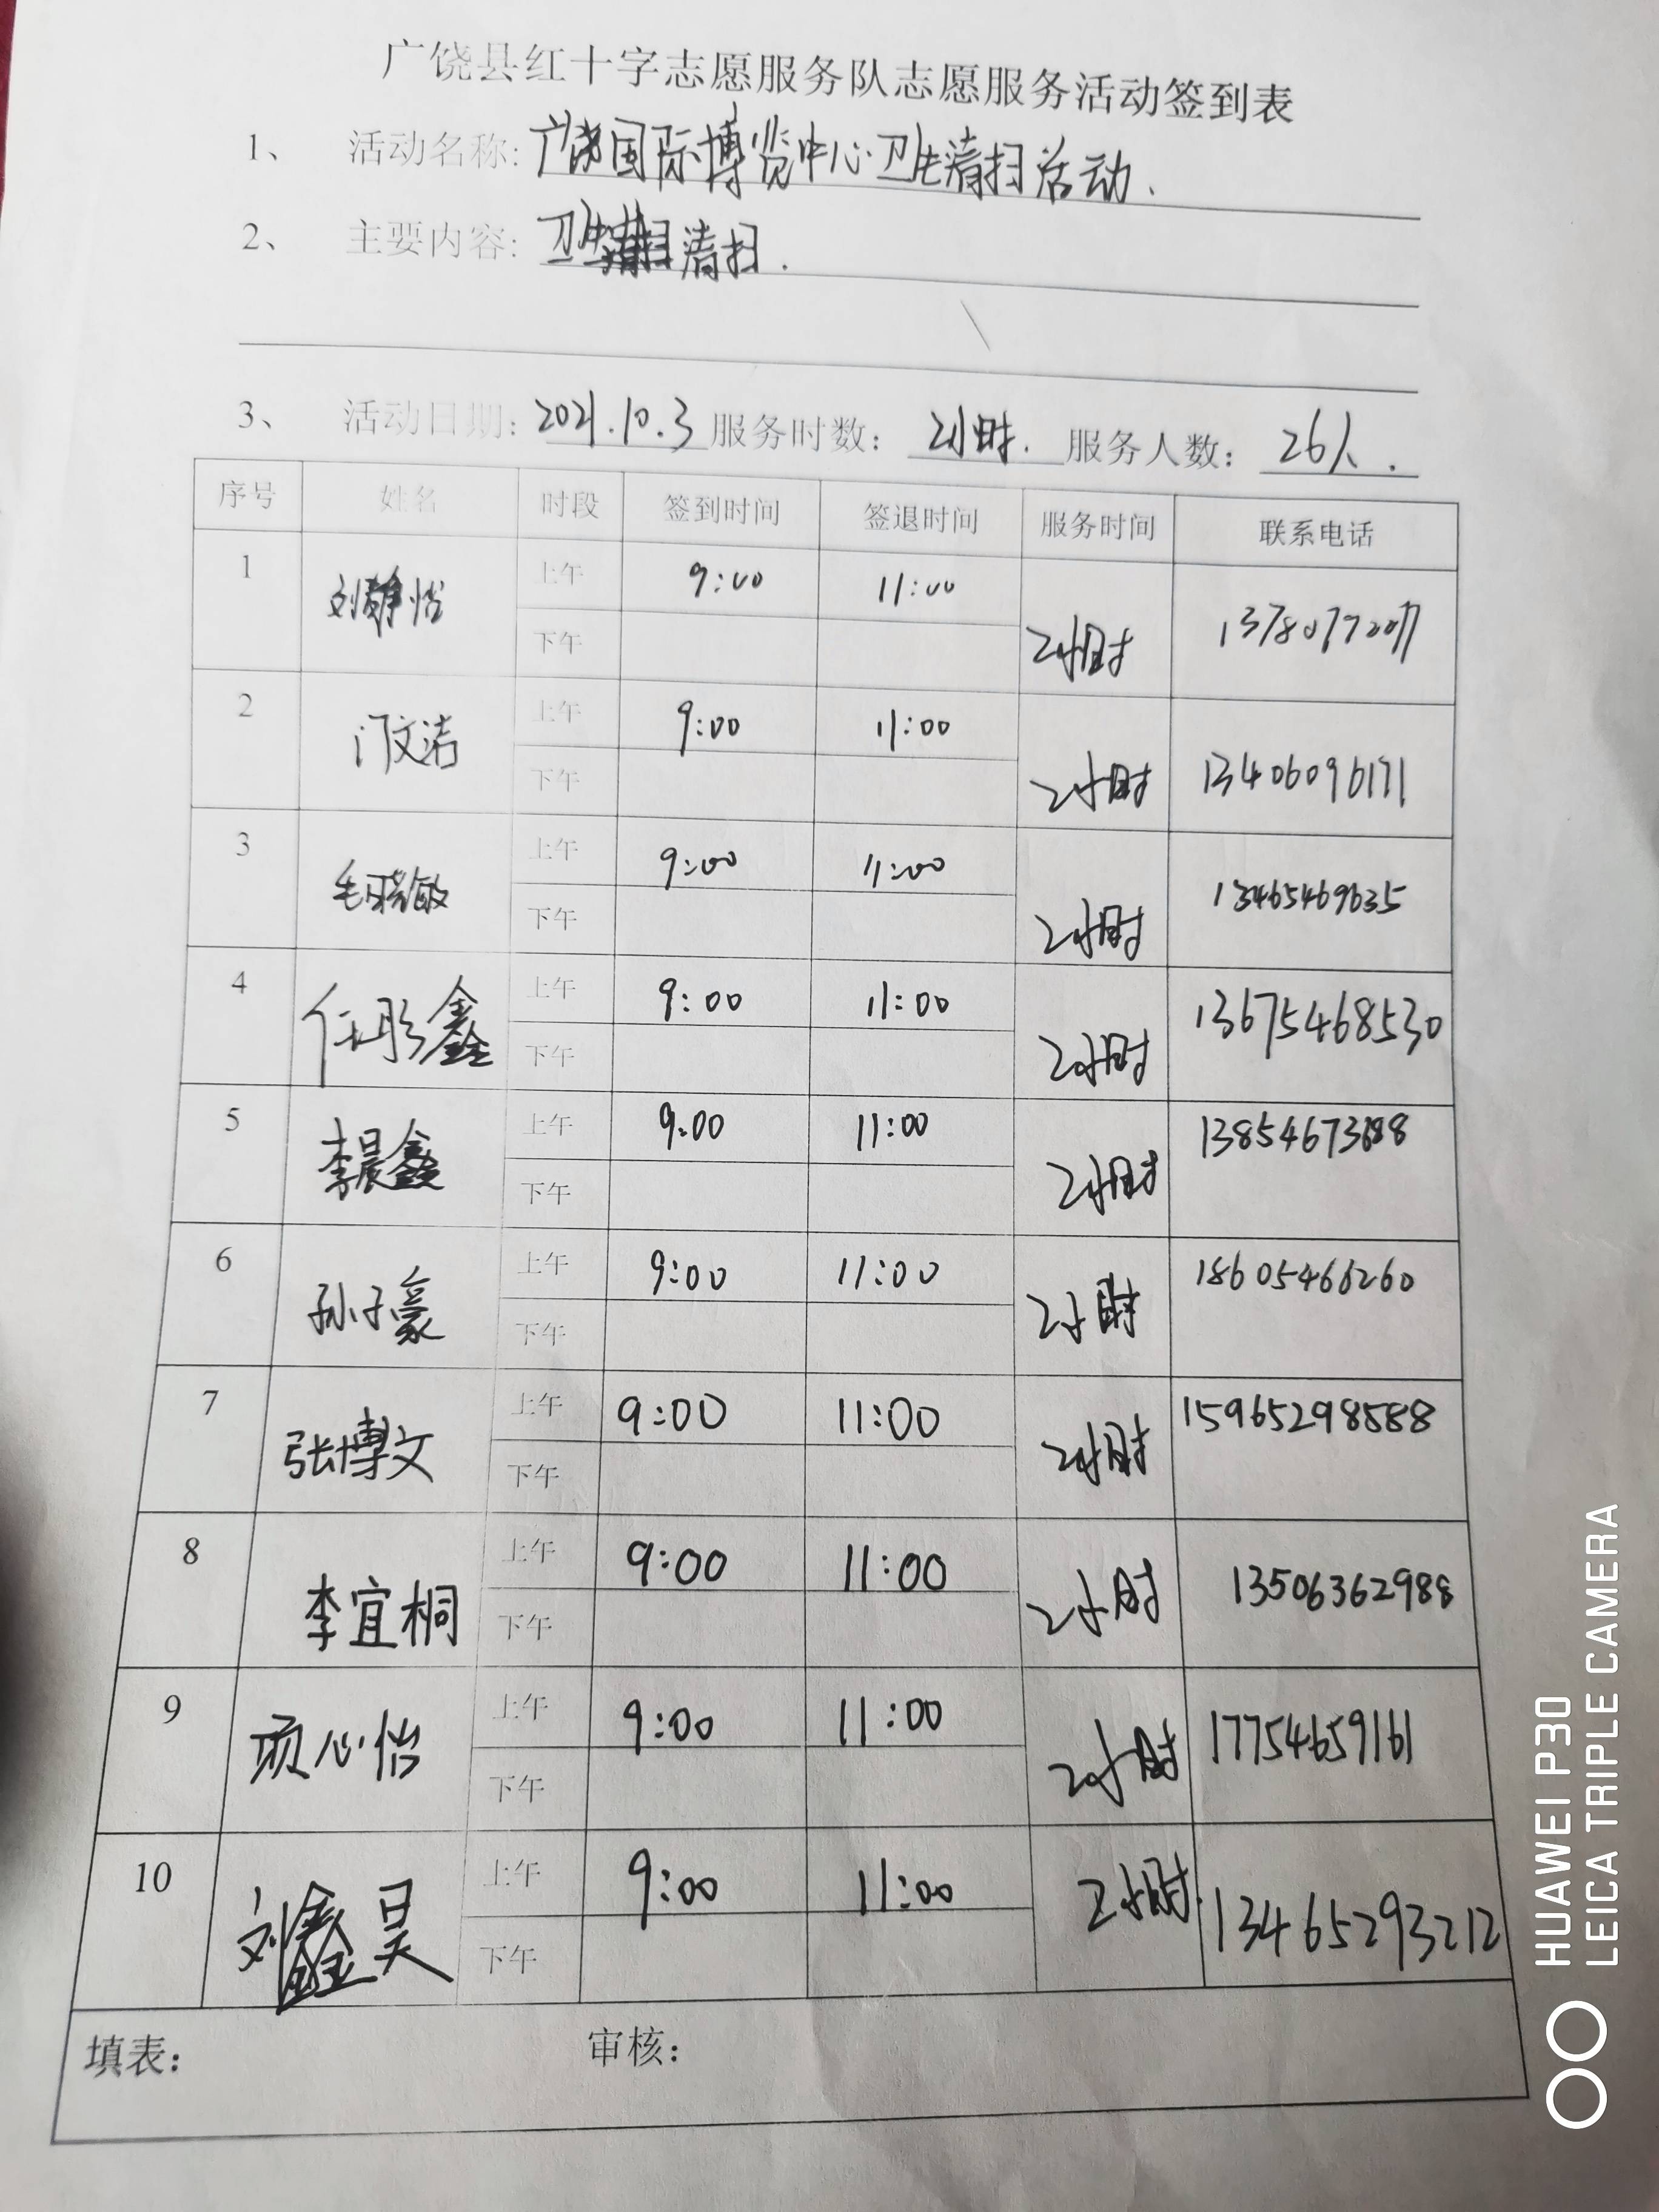 广饶县红十字志愿服务队志愿服务活动签到表
1、 活动名称: 广饶国际博览中心卫生清扫活动.
2、 主要内容: 卫生 清扫.
3、 活动日期: 2021.10.3 服务时数: 2小时. 服务人数: 26人.
序号 姓名 时段 签到时间 签退时间 服务时间 联系电话
1 刘静怡 上午 9:00 11:00 2小时
下午
2 门文洁 上午 9:00 11:00 2小时 13406096171
下午
3 毛晓敏 上午 9:00 11:00 2小时 13465469635
下午
4 任彤鑫 上午 9:00 11:00 2小时 13675468530
下午
5 李晨鑫 上午 9:00 11:00 2小时
下午
6 孙子豪 上午 9:00 11:00 2小时 18605466260
下午
7 张博文 上午 9:00 11:00 2小时 15965298588
下午
8 李宜桐 上午 9:00 11:00 2小时 13506362988
下午
9 项心怡 上午 9:00 11:00 2小时 17754659161
下午
10 刘鑫昊 上午 9:00 11:00 2小时. 13465293212
下午
填表: 审核:
HUAWEI P30
LEICA TRIPLE CAMERA